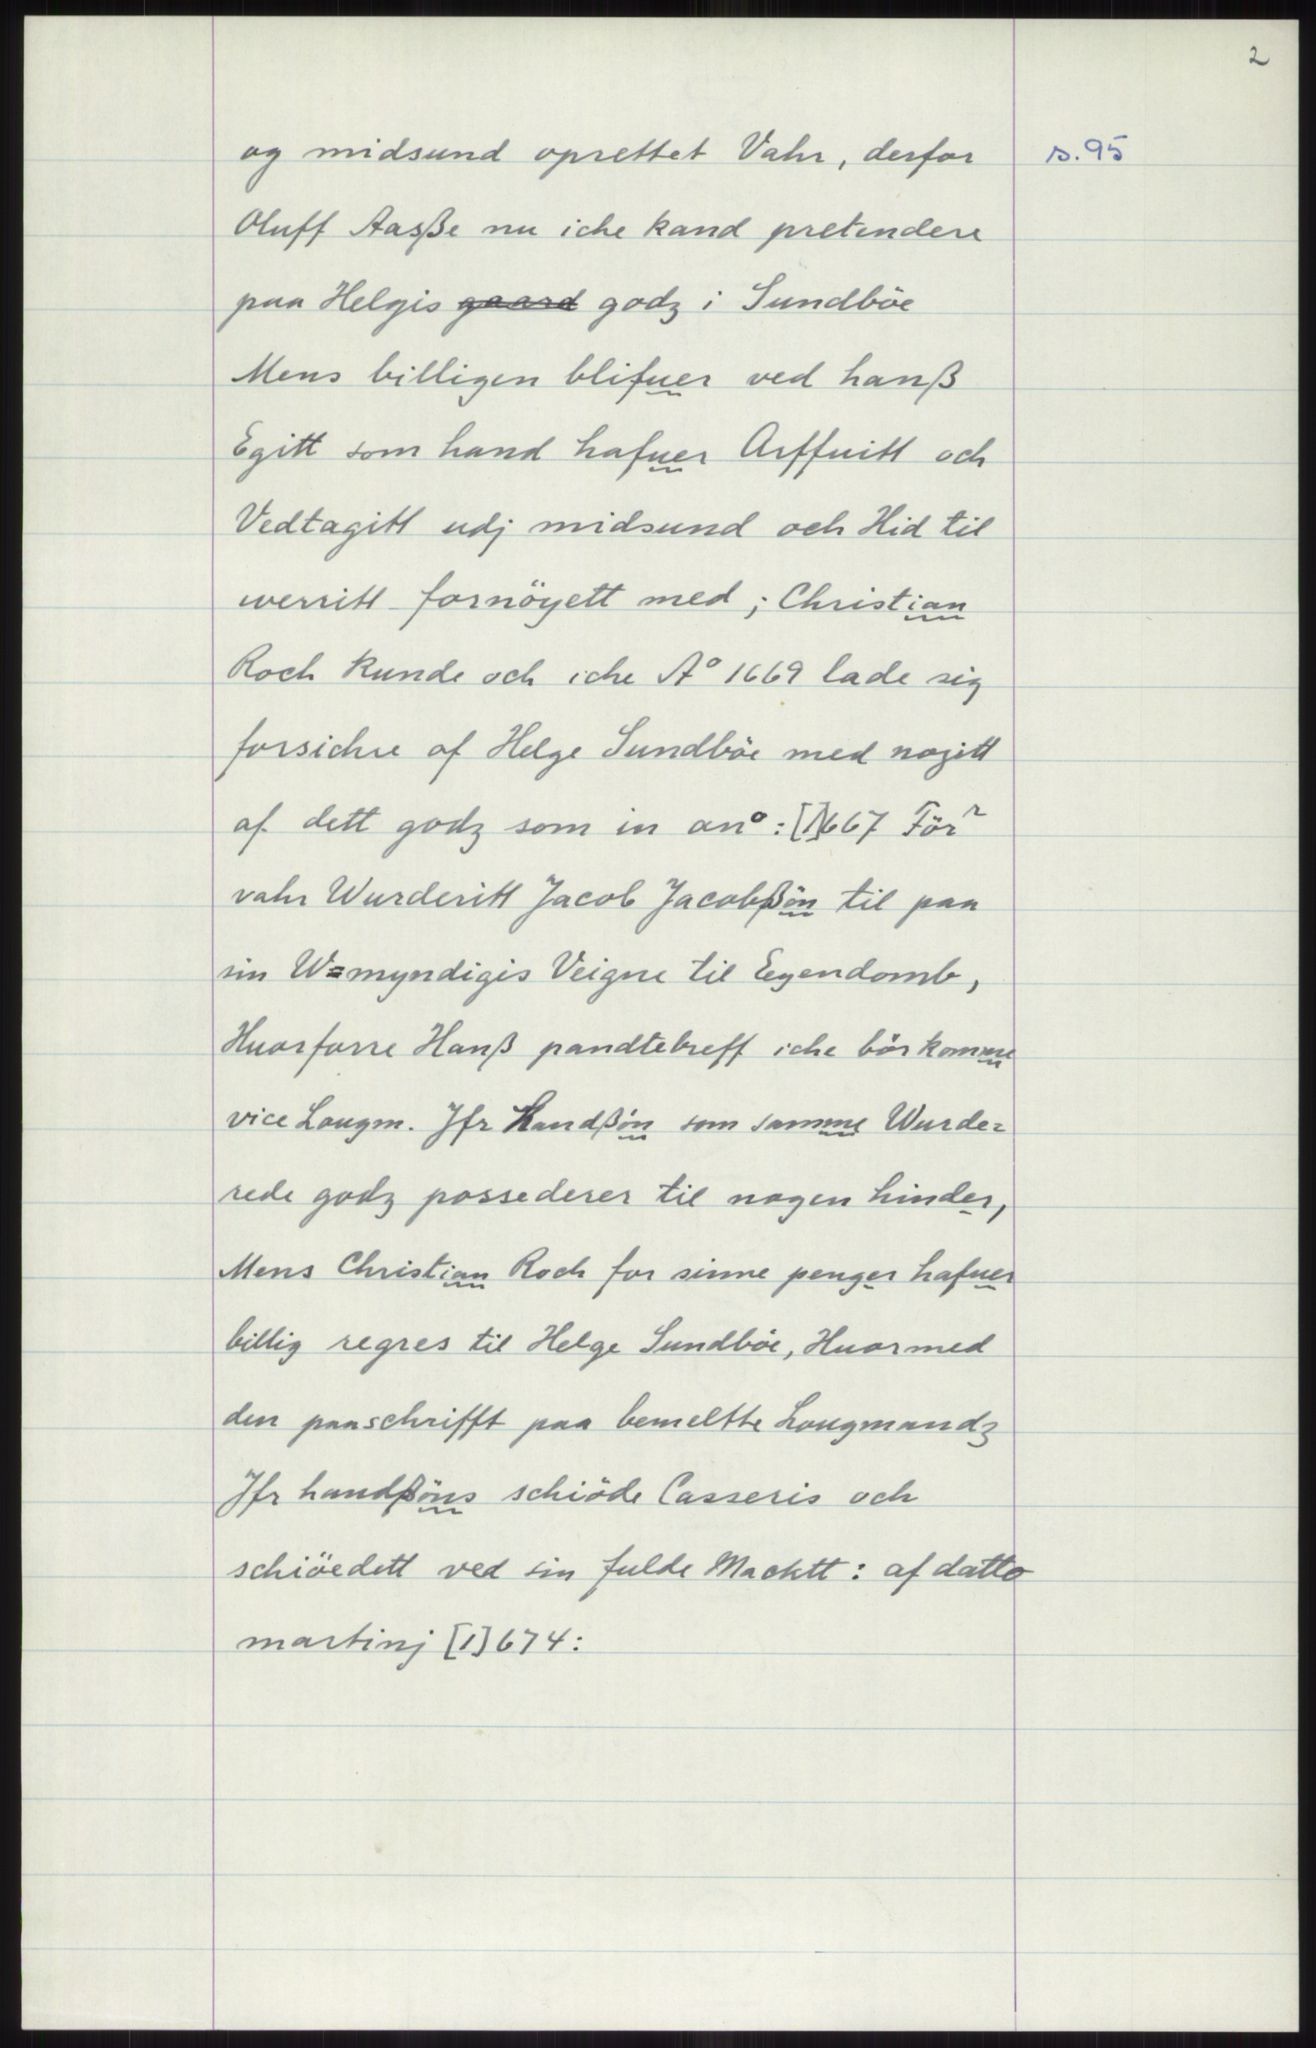 2
og midsund oprettet Vahr, derfor s. 95
Oluff Aasße nu iche kand pretendere
paa Helgis gaard godz i Sundböe
Mens billigen blifuer ved hanß
Egitt som hand hafuer Arffuitt och
Vedtagitt udj midsund och Hid til
werritt fornöyett med; Christian
Roch kunde och iche A° 1669 lade sig
forsichre af Helge Sundböe med nogitt
af dett godz som in an°: [1]667 För
vahr Wurderitt Jacob Jacobßön til paa
sin W=myndigis Veigne til Eegendomb,
Huorforre Hanß pandtebreff iche bör komme
vice Laugm. Jfr Handßön som samme Wurde=
rede godz possederer til nogen hinder,
Mens Christian Roch for sinne penger hafuer
billig regres til Helge Sundböe, Huormed
den paaschrifft paa bemeltte Laugmandz
Jfr handßöns schiöde Casseris och
schiöedett ved sin fulde Macktt: af datto
martinj [1]674: